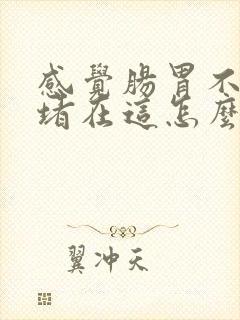 感覺腸胃不
堵在這怎麼
翼冲天